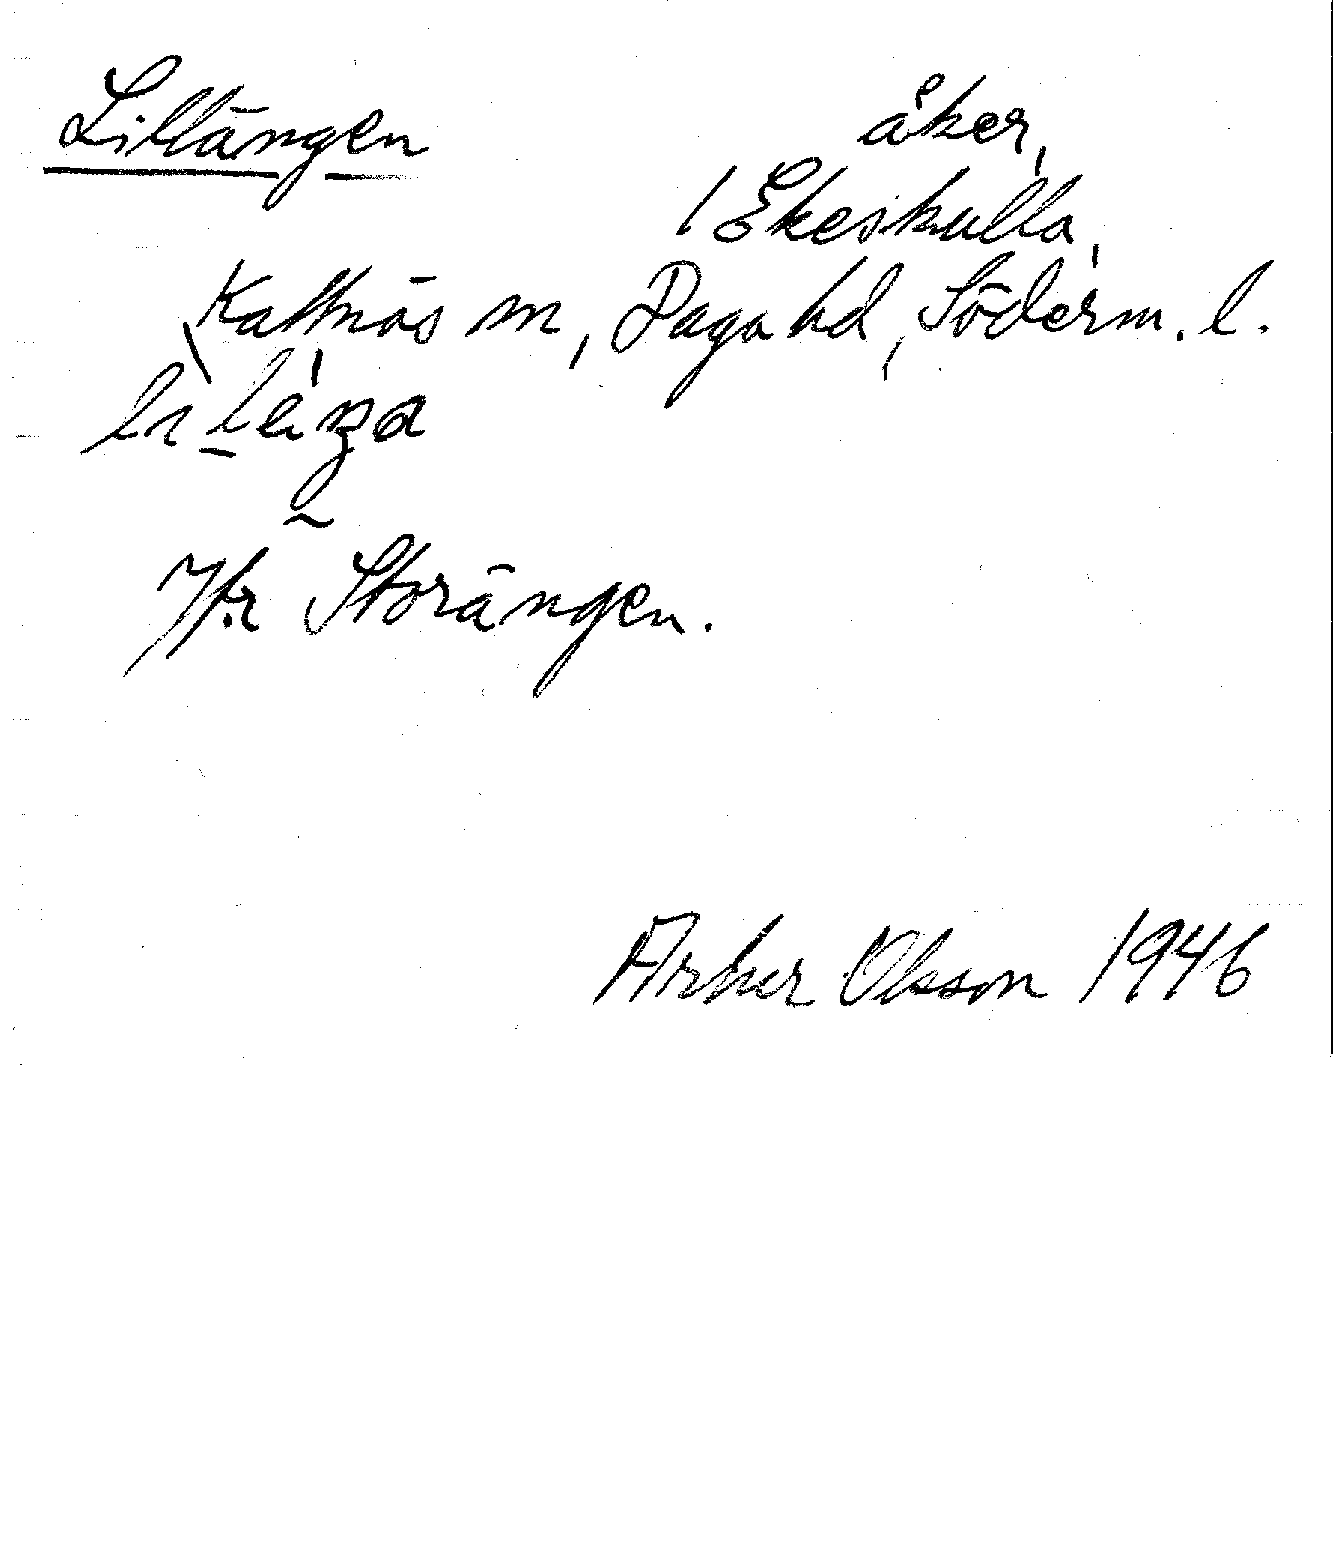 Lillängen
åker,
/ Ekeskulla,
Kattnäs sn, Daga hd, Söderm. l.
Jfr Storängen.
Arthur Olsson 1946